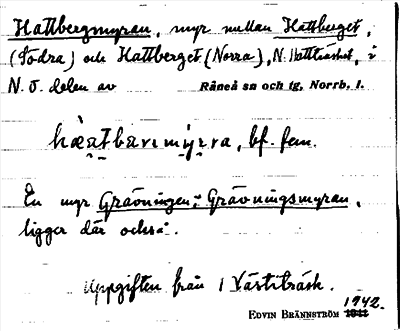 Hattbergmyran, myr mellan Hattberget,
(Södra) och Hattberget (Norra), N. Hattträsket, i
N. Ö. delen av Råneå sn och tg, Norrb. l.
bf. fem.
En myr Grävningen: Grävningsmyran,
ligger där också.
Uppgiften från 1 Västiträsk.
EDVIN BRÄNNSTRÖM 1942.